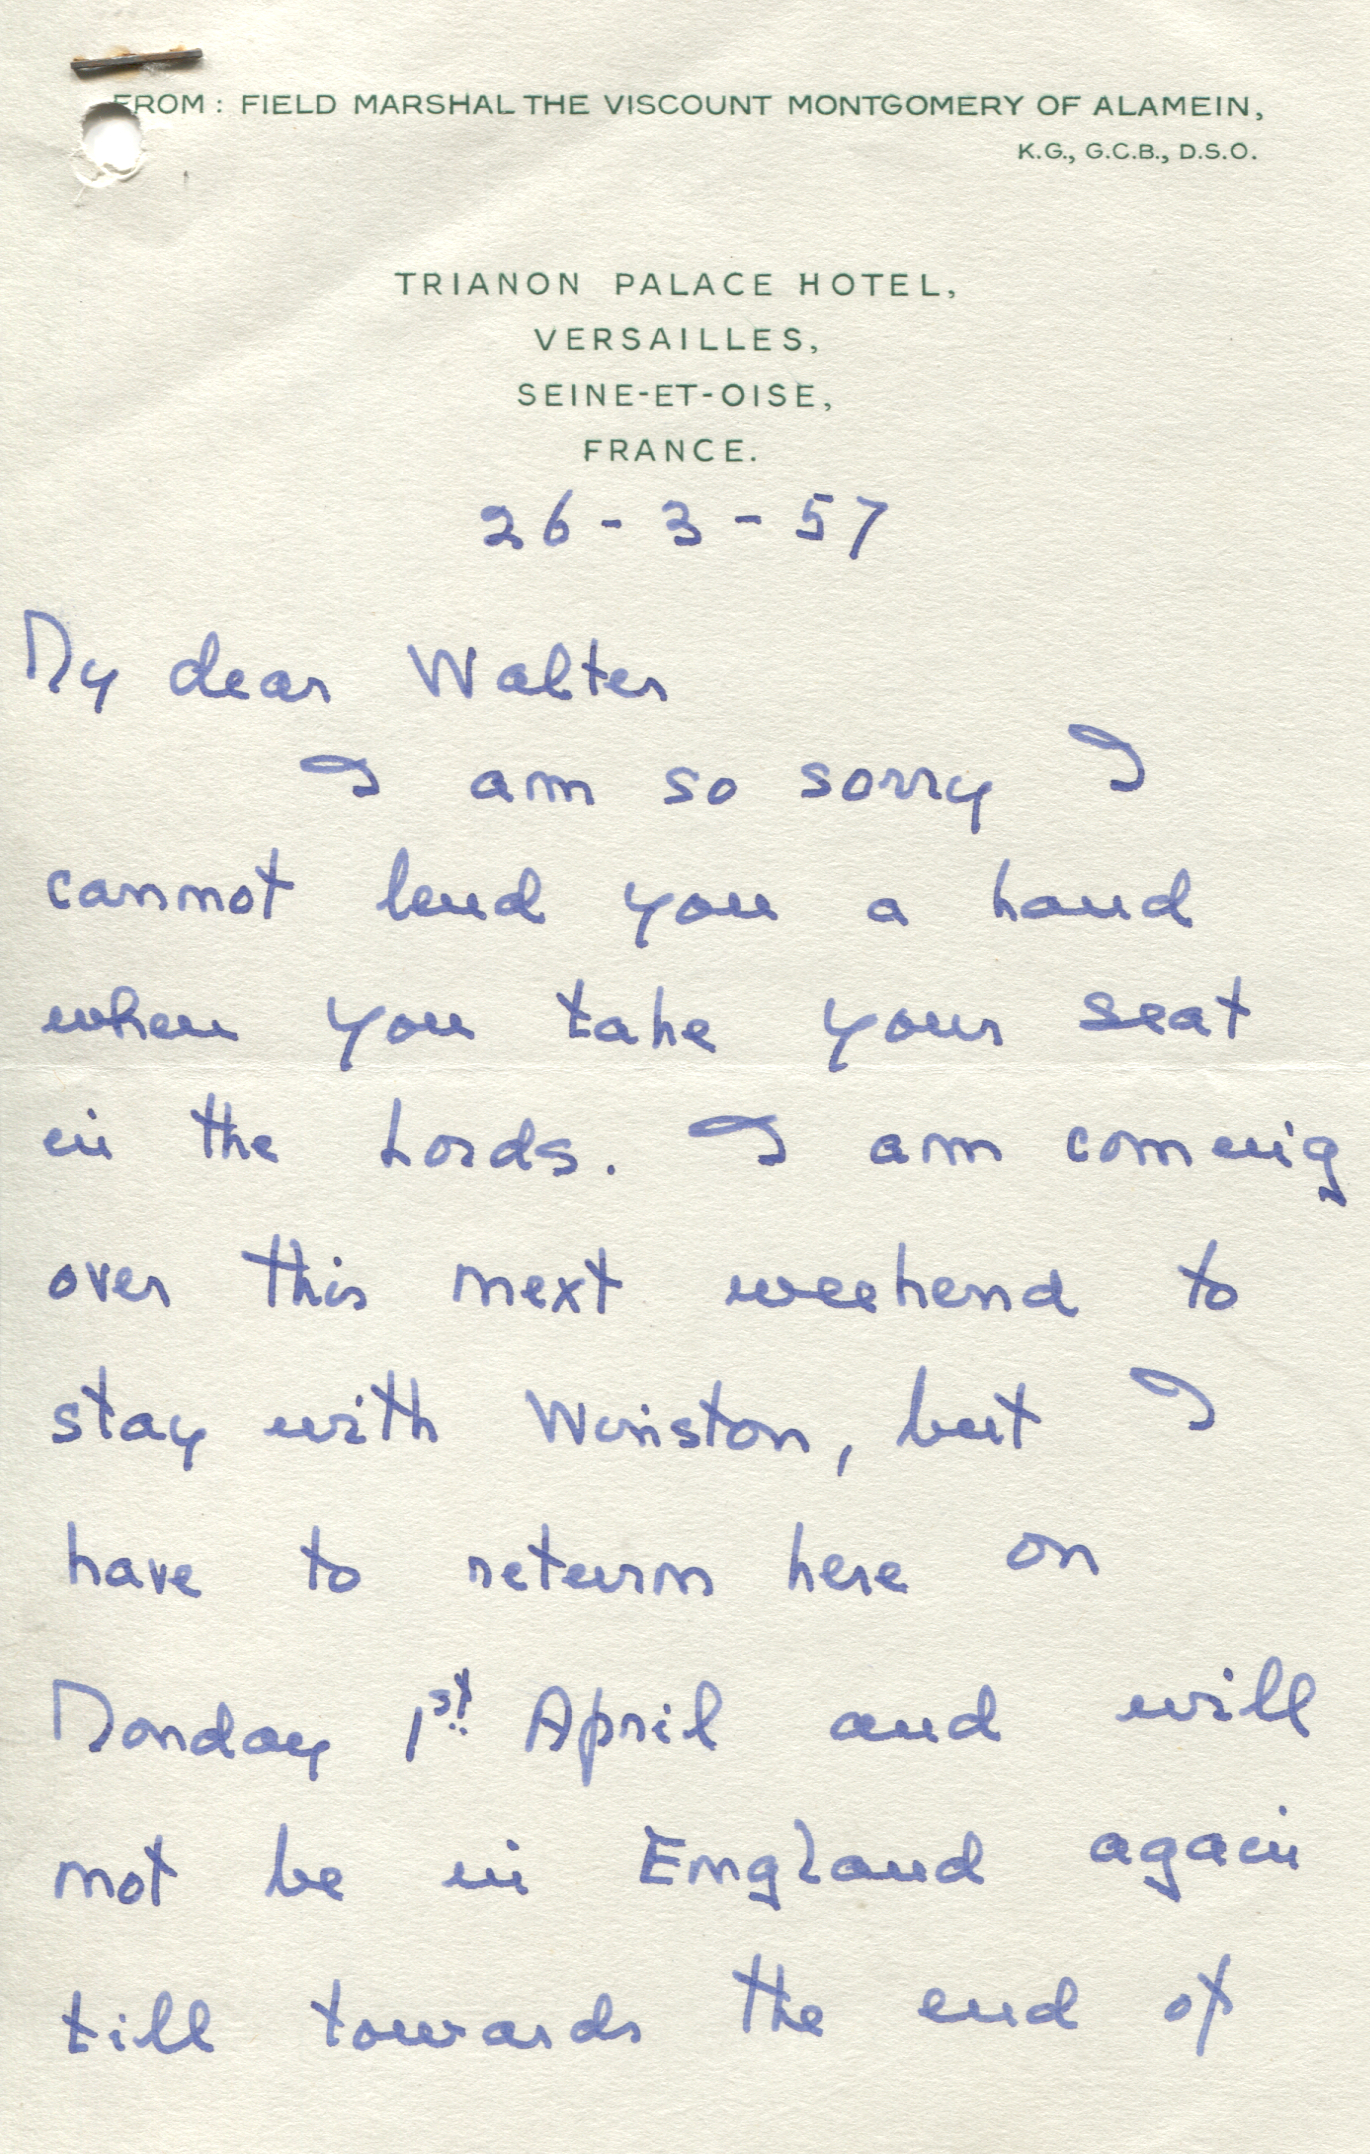 FROM: FIELD MARSHAL THE VISCOUNT MONTGOMERY OF ALAMEIN,
K.G., G.C.B., D.S.O.
TRIANON PALACE HOTEL,
VERSAILLES,
SEINE-ET-OISE,
FRANCE.
26-3-57
My dear Walter
I am so sorry I
cannot lend you a hand
when you take your seat
in the Lords. I am coming
over this next weekend to
stay with Winston, but I
have to return here on
Monday 1st April and will
not be in England again
till towards the end of